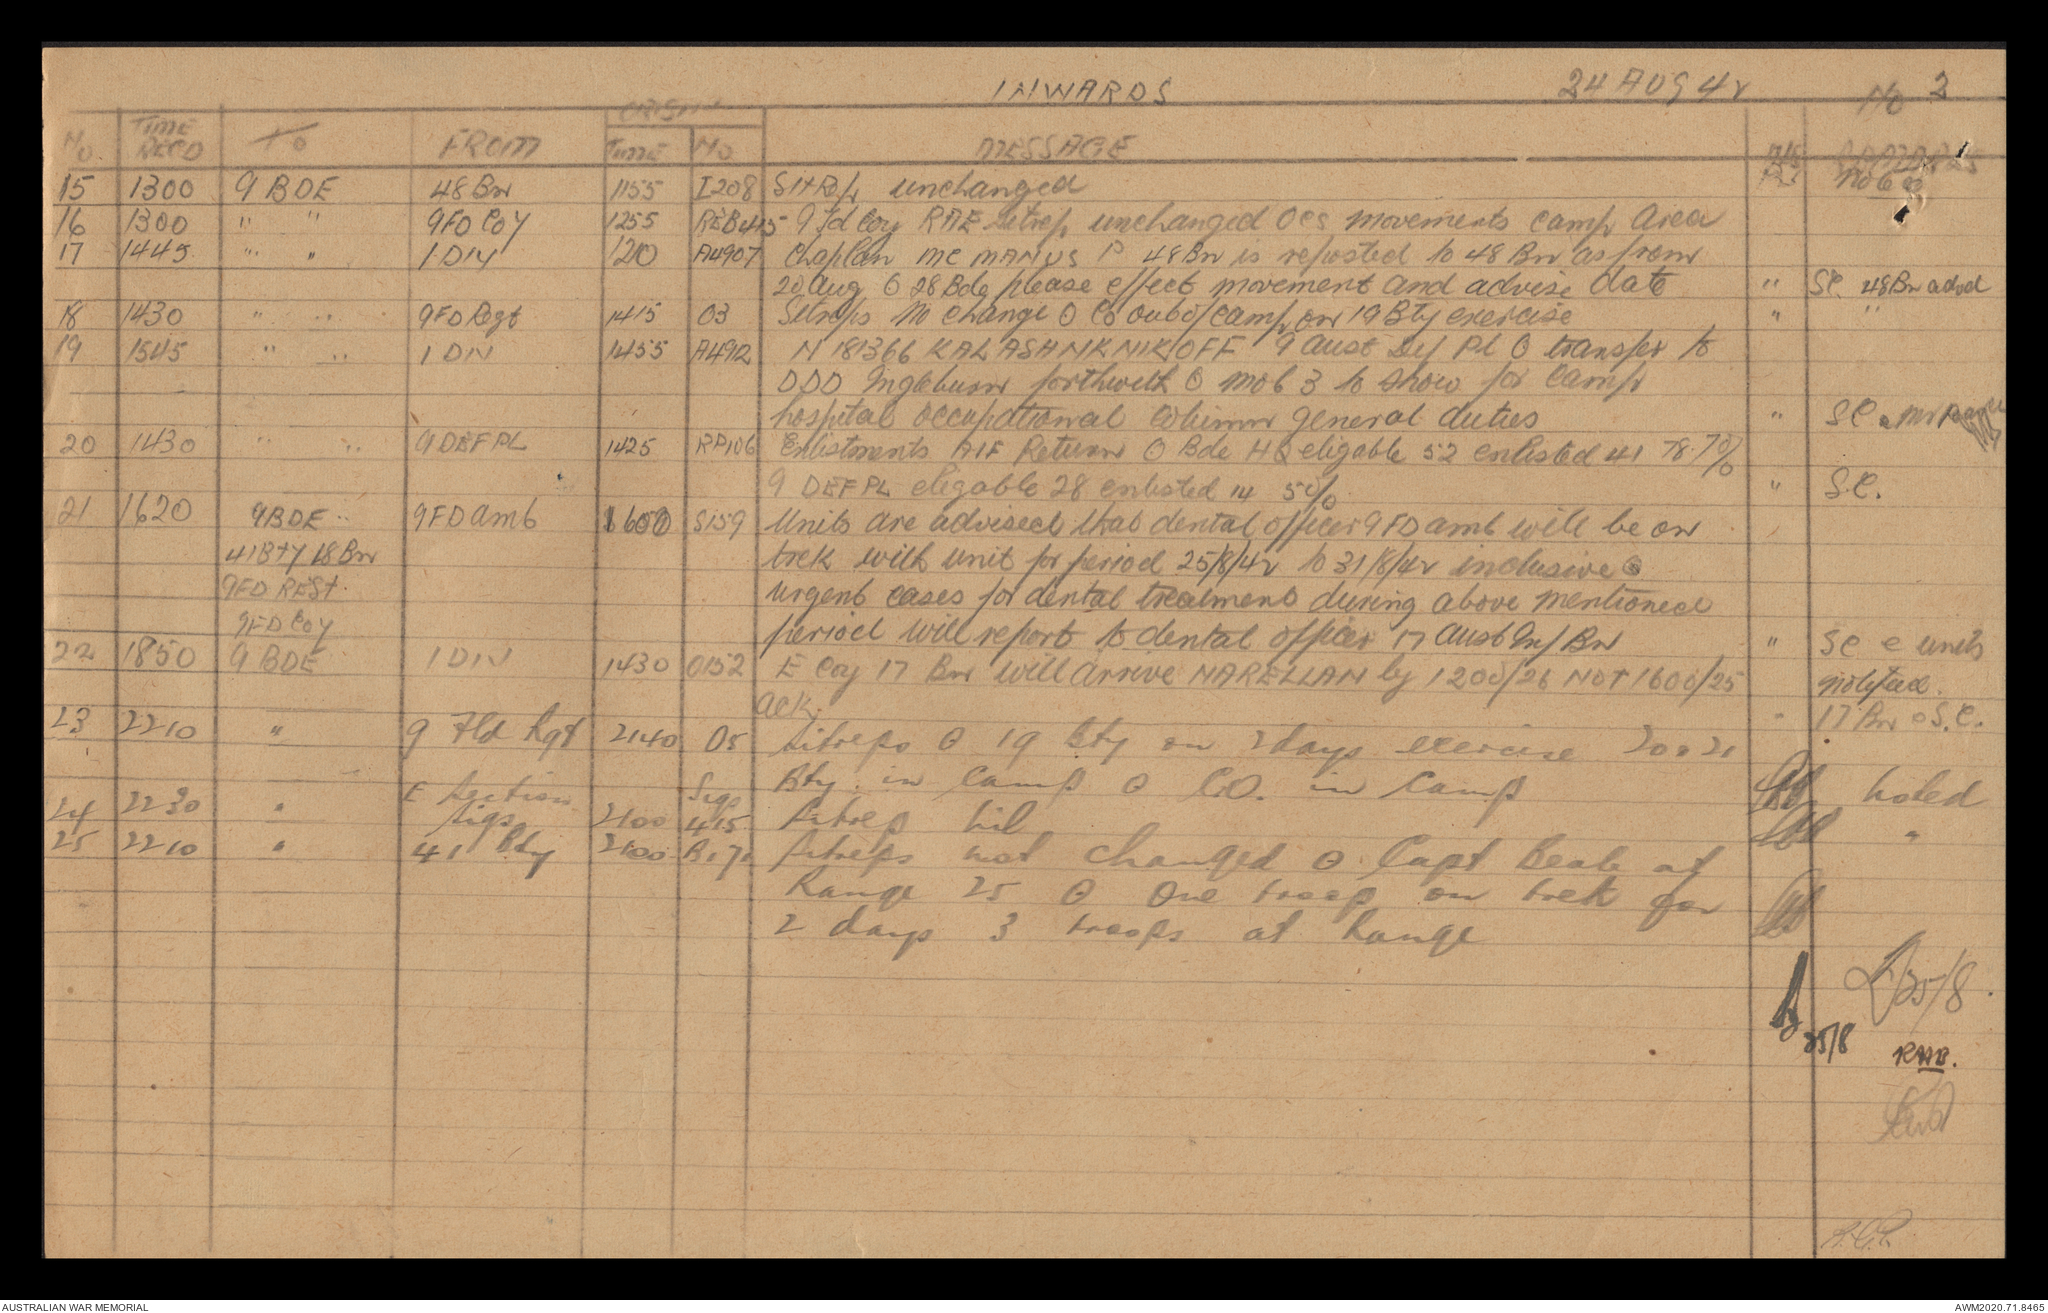 INWARDS 24 AUG 42 No 2
ORIGIN
No TIME RECD TO FROM TIME No MESSAGE
15 1300 9 BDE 48 Bn 1155 I208 SitRep unchanged noted
16 1300 " " 9FD Coy 1255 REB415 9 Fd Coy RAE sitrep unchanged OCs movements camp area
17 1445 " " 1 DIV 1210 A4907 Chaplan MCMANUS P 48 Bn is reposted to 48 Bn as from
20 Aug O 28 Bde please effect movement and advise date " SC. 48Bn advd
18 1430 " " 9FD Regt 1415 O3 Sitreps No change O Co out of camp on 19 Bty exercise " "
19 1545 " " 1 DIV 1455 A4912 N 181366 KALASHNIKNIKOFF 9 Aust Def Pl O transfer to
DDD Ingleburn forthwith O Mob 3 to show for camp
hospital occupational column general duties " SC
20 1430 " " 9 DEF PL 1425 RP106 Enlistments AIF Return O Bde HQ eligable 52 enlisted 41 78.7%
9 DEF PL eligable 28 enlisted 14 50% " S.C.
21 1620 9BDE 9FD Amb 1600 S159 Units are advised that dental officer 9 FD amb will be on
41 Bty 18 Bn trek with unit for period 25/8/42 to 31/8/42 inclusive O
9FD REGt urgent cases for dental treatment during above mentioned
9FD Coy period will report to dental officer 17 Aust Inf Bn " SC e units
22 1850 9 BDE 1 DIV 1430 O152 E Coy 17 Bn will arrive NARELLAN by 1200/26 NOT 1600/25 notified.
ack. " 17 Bn o S.C.
23 2210 " 9 Fld Rgt 2140 O5 Sitreps O 19 Bty on 2 days exercise 20 & 21
Bty in Camp O C.O. in Camp noted
24 2230 " E Section Sigs 2100 Sigs 415 Sitrep Nil "
25 2210 " 41 Bty 2100 B171 Sitreps not changed O Capt Beale at
Range 25 O One troop on trek for
2 days 3 troops at Range
25/8
25/8
RHB.
AUSTRALIAN WAR MEMORIAL AWM2020.71.8465